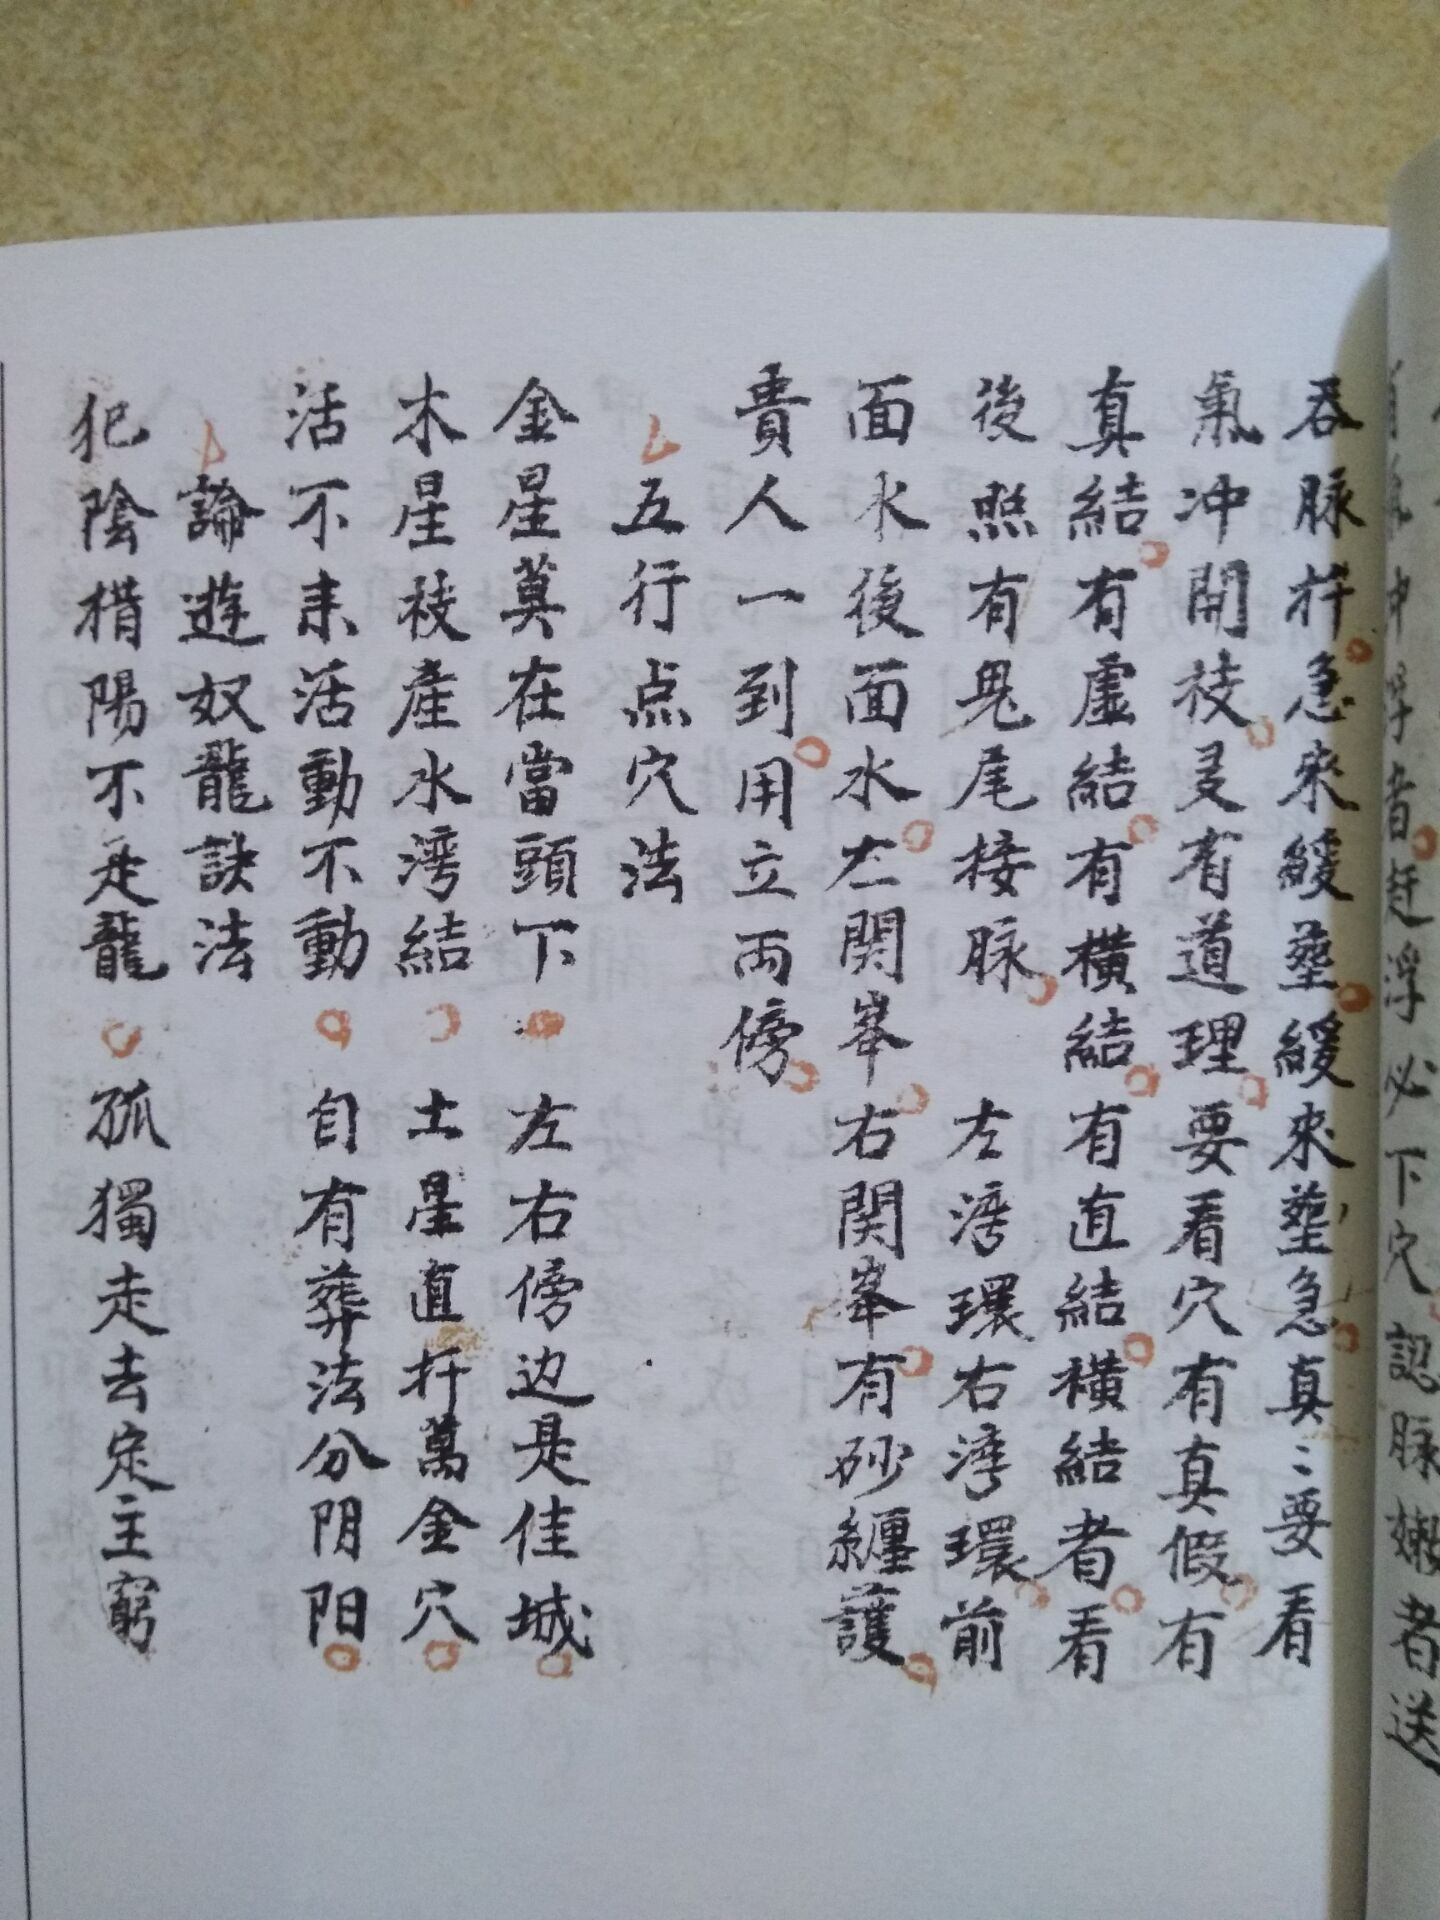 吞脉扦急來緩塟緩來塟急真〻要看
氣冲開枝叚有道理要看穴有真假有
真結有虛結有橫結有直結橫結者看
後照有鬼尾接脉 左湾環右湾環前
面水後面水左関峯右関峯有砂纏護
貴人一到用立両傍
五行点穴法
金星莫在當頭下 左右傍边是佳城
木星枝產水湾結 土星直扦萬金穴
活不来活動不動 自有葬法分阴阳
論遊奴龍訣法
犯陰楷陽不是龍 孤獨走去定主窮
者赶浮必下穴認脉嫩者送